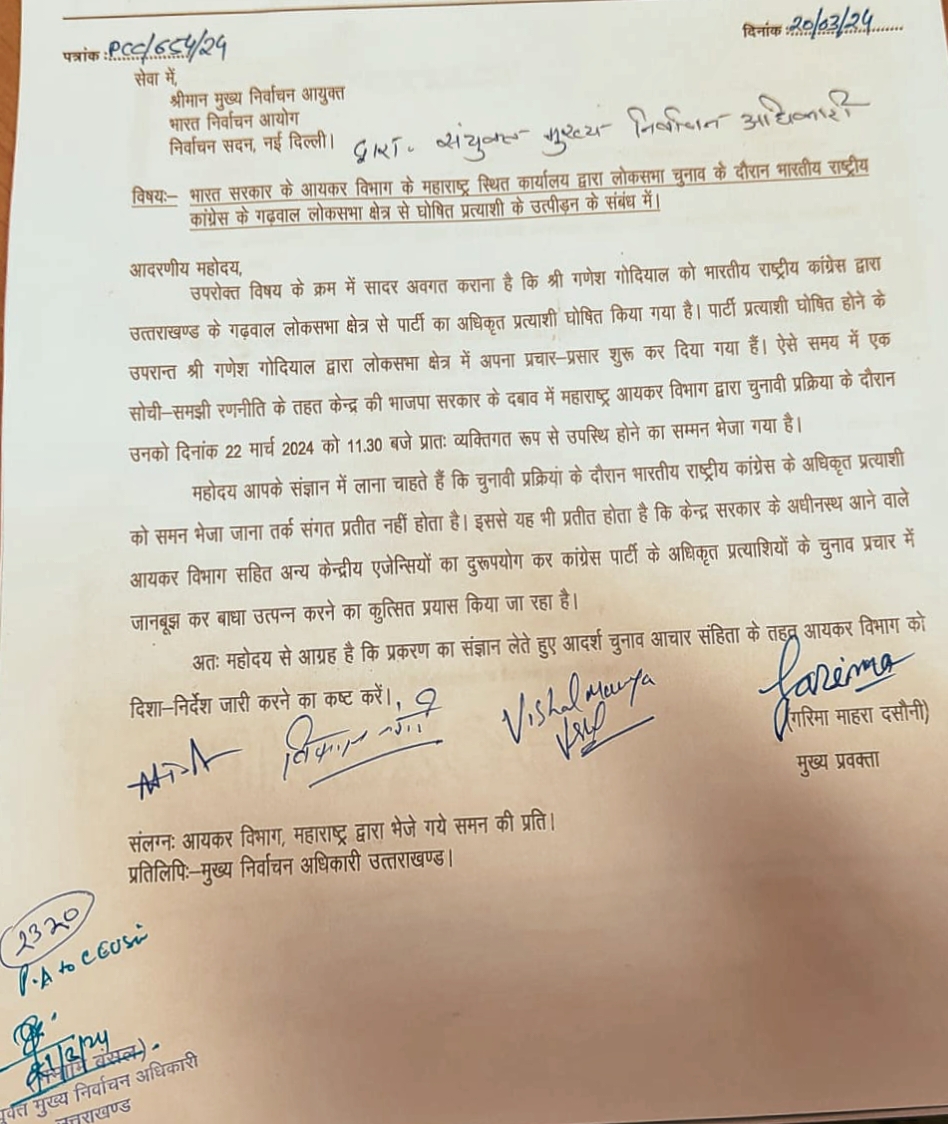 पत्रांक :PCC/654/24
दिनांक :20/03/24
सेवा में,
श्रीमान मुख्य निर्वाचन आयुक्त
भारत निर्वाचन आयोग
निर्वाचन सदन, नई दिल्ली।
द्वारा- संयुक्त मुख्य निर्वाचन अधिकारी
विषयः– भारत सरकार के आयकर विभाग के महाराष्ट्र स्थित कार्यालय द्वारा लोकसभा चुनाव के दौरान भारतीय राष्ट्रीय
कांग्रेस के गढ़वाल लोकसभा क्षेत्र से घोषित प्रत्याशी के उत्पीड़न के संबंध में।
आदरणीय महोदय,
उपरोक्त विषय के क्रम में सादर अवगत कराना है कि श्री गणेश गोदियाल को भारतीय राष्ट्रीय कांग्रेस द्वारा
उत्तराखण्ड के गढ़वाल लोकसभा क्षेत्र से पार्टी का अधिकृत प्रत्याशी घोषित किया गया है। पार्टी प्रत्याशी घोषित होने के
उपरान्त श्री गणेश गोदियाल द्वारा लोकसभा क्षेत्र में अपना प्रचार–प्रसार शुरू कर दिया गया हैं। ऐसे समय में एक
सोची–समझी रणनीति के तहत केन्द्र की भाजपा सरकार के दबाव में महाराष्ट्र आयकर विभाग द्वारा चुनावी प्रक्रिया के दौरान
उनको दिनांक 22 मार्च 2024 को 11.30 बजे प्रातः व्यक्तिगत रूप से उपस्थि होने का सम्मन भेजा गया है।
महोदय आपके संज्ञान में लाना चाहते हैं कि चुनावी प्रक्रियां के दौरान भारतीय राष्ट्रीय कांग्रेस के अधिकृत प्रत्याशी
को समन भेजा जाना तर्क संगत प्रतीत नहीं होता है। इससे यह भी प्रतीत होता है कि केन्द्र सरकार के अधीनस्थ आने वाले
आयकर विभाग सहित अन्य केन्द्रीय एजेन्सियों का दुरूपयोग कर कांग्रेस पार्टी के अधिकृत प्रत्याशियों के चुनाव प्रचार में
जानबूझ कर बाधा उत्पन्न करने का कुत्सित प्रयास किया जा रहा है।
अतः महोदय से आग्रह है कि प्रकरण का संज्ञान लेते हुए आदर्श चुनाव आचार संहिता के तहत आयकर विभाग को
दिशा–निर्देश जारी करने का कष्ट करें।
Vishal Maurya
Garima
(गरिमा माहरा दसौनी)
मुख्य प्रवक्ता
संलग्नः आयकर विभाग, महाराष्ट्र द्वारा भेजे गये समन की प्रति।
प्रतिलिपिः–मुख्य निर्वाचन अधिकारी उत्तराखण्ड।
2320
P.A to CEO
मुख्य निर्वाचन अधिकारी